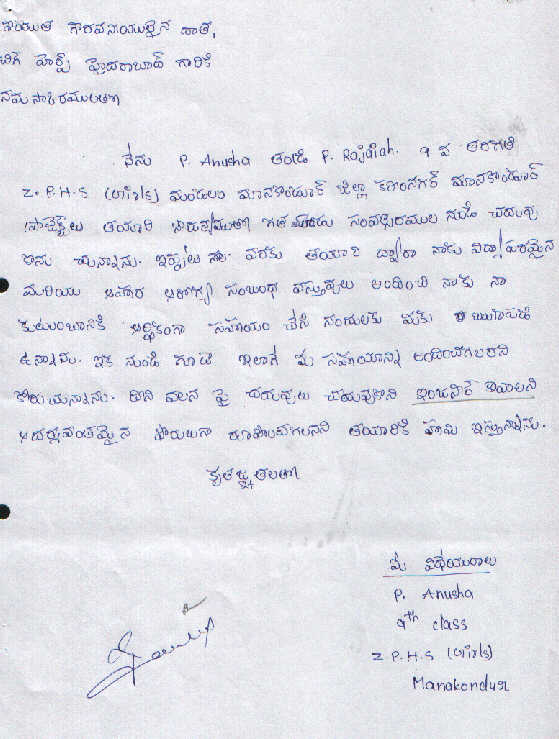 గౌరవనీయులైన దాత,
బిగ్ హెల్ప్ హైదరాబాద్ గారికి
నమస్కారములతో
నేను P. Anusha తండ్రి P. Rajaiah. 9 వ తరగతి
Z.P.H.S (Girls) మండలం మానకొండూర్ జిల్లా కరీంనగర్ మానకొండూర్
గత మూడు సంవత్సరముల నుండి చదువు
తున్నాను. ఇప్పటి వరకు తయారి ద్వారా నాకు
మరియు ఆహార ఆరోగ్య సంబంధ వస్తువులు అందించి నాకు నా
కుటుంబానికి ఆర్థికంగా సహాయం చేసి నందులకు మీకు ఋణపడి
ఉన్నాను. ఇక నుండి కూడ ఇలాగే మీ సహాయాన్ని అందించగలరని
కోరుచున్నాను. దాని వలన పై చదువులు చదువుకొని
ఆదర్శవంతమైన పౌరులుగా రూపొందగలనని తయారికి హామి ఇస్తున్నాను.
కృతజ్ఞతలతో
మీ విధేయురాలు
P. Anusha
9th class
Z.P.H.S (Girls)
Manakondur